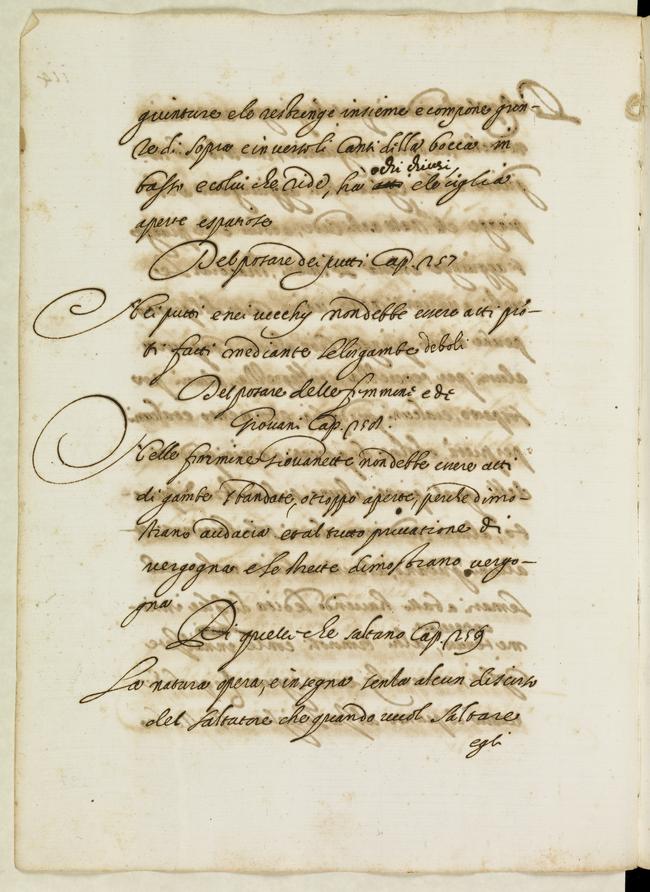 giunture e lo restringe insieme e compone gion-
te di sopra e inverso li canti della bocca in
occhi chiusi,
basso e colui che ride, ha e le ciglia
aperte e spatiose
Del posare dei putti Cap. 257
Nei putti e nei vecchy non debbe evere atti pro-
ti fatti mediante le lor gambe deboli
Del posare delle femmine e de
Giovani Cap. 258.
Nelle femmine e Giovanette non debbe evere atti
di gambe sbandate, o troppo aperte, perche dimo-
strano audacia et al tutto privatione di
vergogna e le strette dimostrano vergo-
gna
Di quelli che saltano Cap. 259
La natura opera, e insegna senza alcun discurso
del saltatore che quando vuol saltare
egli